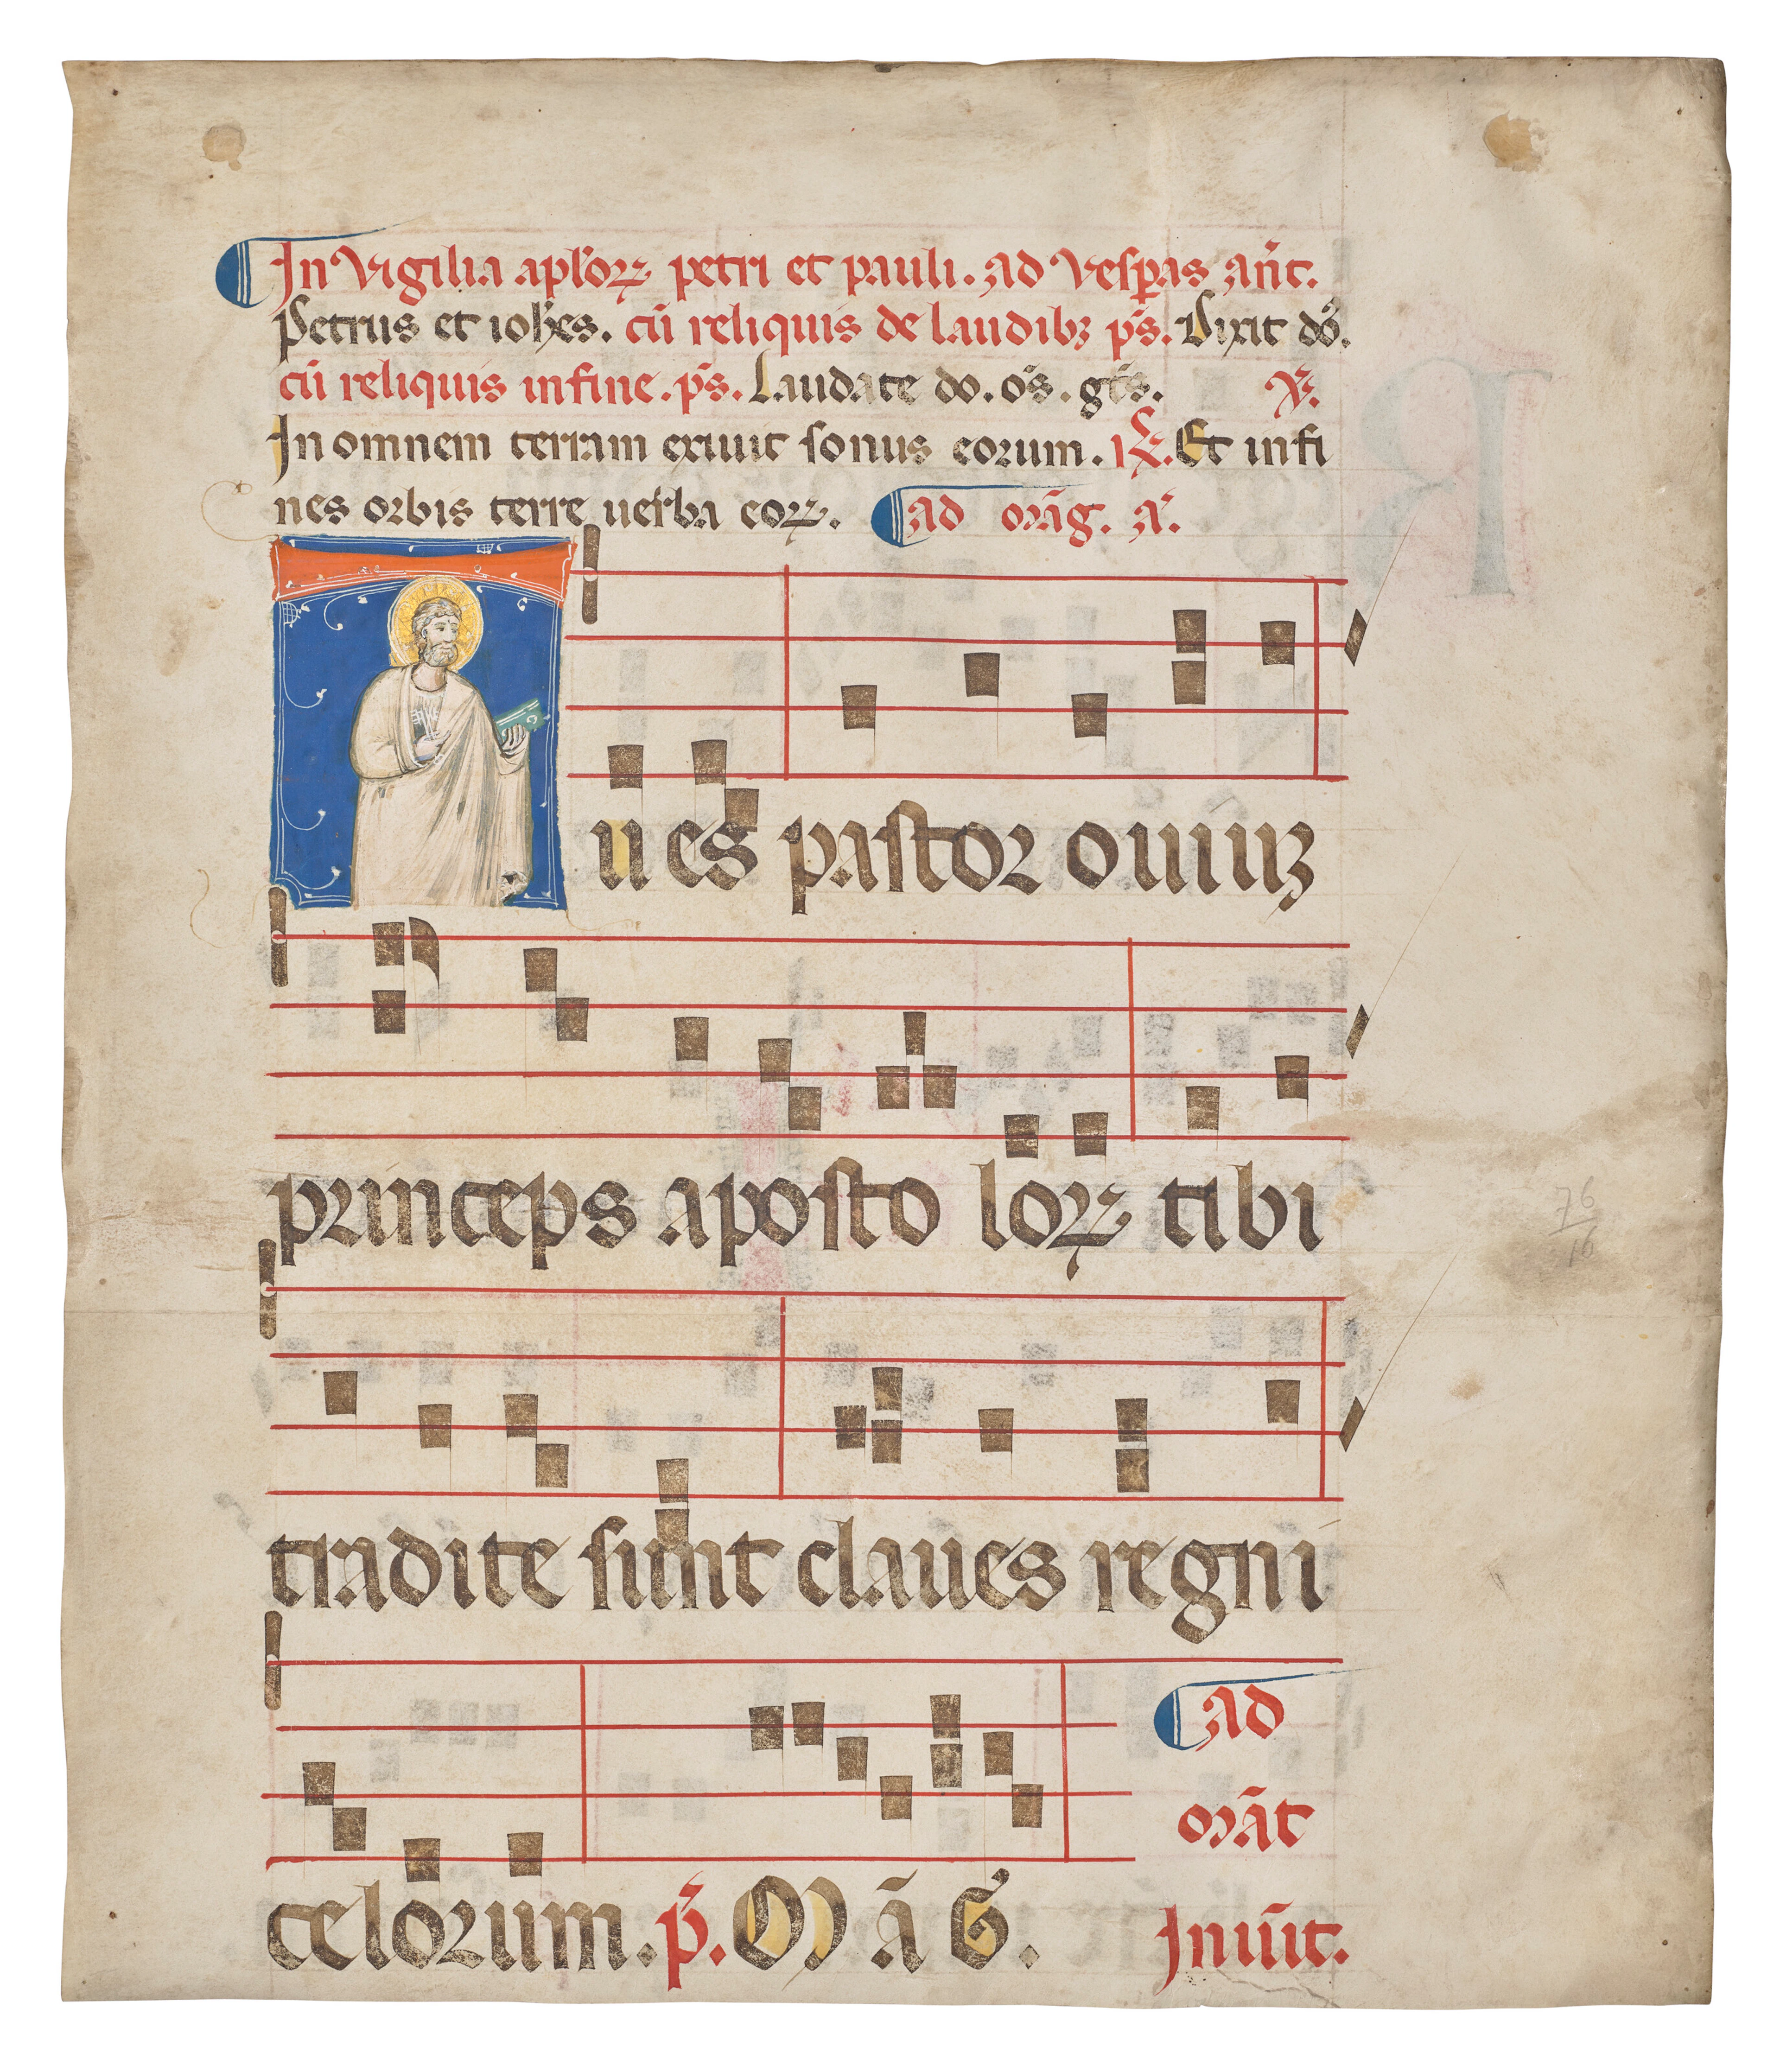 In Vigilia apl'oꝝ petri et pauli. ad Vesꝑas an̄t.
Petrus et ioh̄es. cū reliquis de laudibꝫ p̄s. Dixit do᷒.
cū reliquis in fine. p̄s. Laudate do. oēs. gēs. ℣.
In omnem terram exiuit sonus eorum. ℟. Et in fi
nes orbis terre uerba eoꝝ. ad māg. a᷒.
Tu es pastor ouiuꝫ
princeps aposto loꝝ tibi
tradite sunt claues regni
celorum. p̄. M ā G. ad
māt
Inuit.
76
16